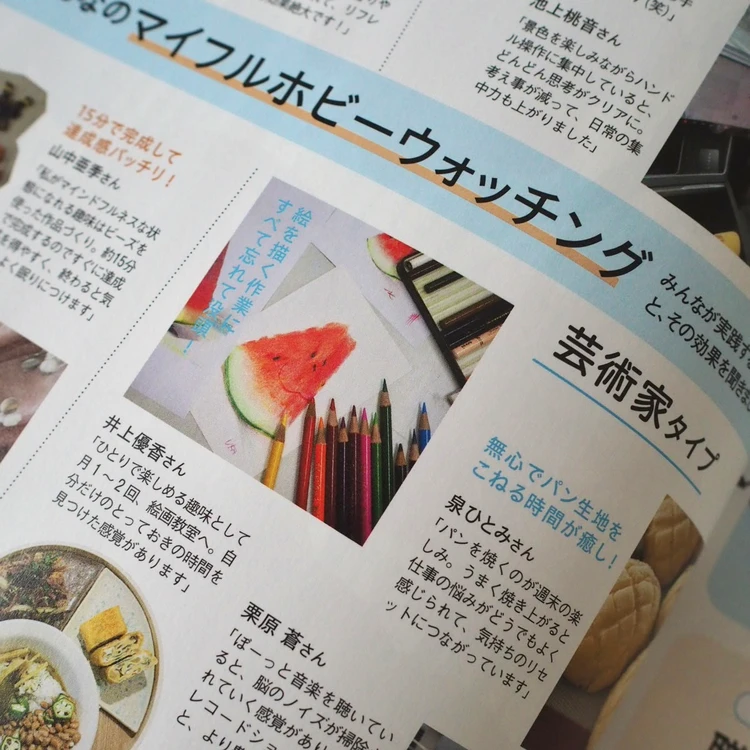 なのマイフルホビーウォッチング
池上桃音さん
「景色を楽しみながらハンド
ル操作に集中していると、
どんどん思考がクリアに。
考え事が減って、日常の集
中力も上がりました」
15分で完成して
達成感バッチリ！
山中亜季さん
「私がマインドフルネスな状
態になれる趣味はビーズを
使った作品づくり。約15分
で完成するのですぐに達成
感を得やすく、終わると気
よく眠りにつけます」
絵を描く作業に
すべて忘れて没頭！
井上優香さん
「ひとりで楽しめる趣味として
月1〜2回、絵画教室へ。自
分だけのとっておきの時間を
見つけた感覚があります」
みんなが実践す
と、その効果を聞きま
芸術家タイプ
無心でパン生地を
こねる時間が癒し！
泉ひとみさん
「パンを焼くのが週末の楽
しみ。うまく焼き上がると
仕事の悩みがどうでもよく
感じられて、気持ちのリセ
ットにつながっています」
栗原 蒼さん
「ぼーっと音楽を聴いてい
ると、脳のノイズが掃除
れていく感覚があり
レコードショ
と、より